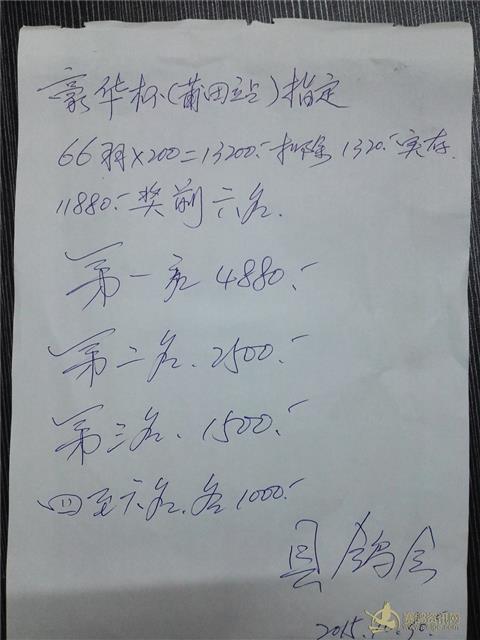 豪华杯(莆田站)指定
66羽×200=13200.-扣除1320.-实存.
11880.-奖前六名.
第一名 4880.-
第二名.2500.-
第三名.1500.-
四至六名.各1000.-
县鸽会
2015.